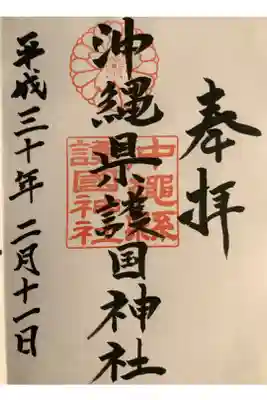 奉拝
沖縄県護国神社
沖縄縣
護国神社
平成三十年二月十一日